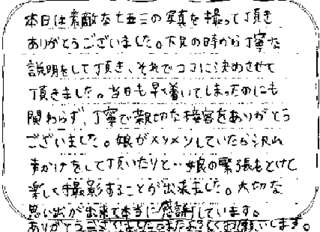 本日は素敵な七五三の写真を撮って頂き
ありがとうございました。下見の時から丁寧な
説明をして頂き、それでココに決めさせて
頂きました。当日も早く着いてしまったのにも
関わらず、丁寧で親切な接客をありがとう
ございました。娘がメソメソしていたら沢山
声かけをして頂いたりと…娘の緊張もとけて
楽しく撮影することが出来ました。大切な
思い出が出来て本当に感謝しています。
ありがとうございました。またよろしくお願いします。